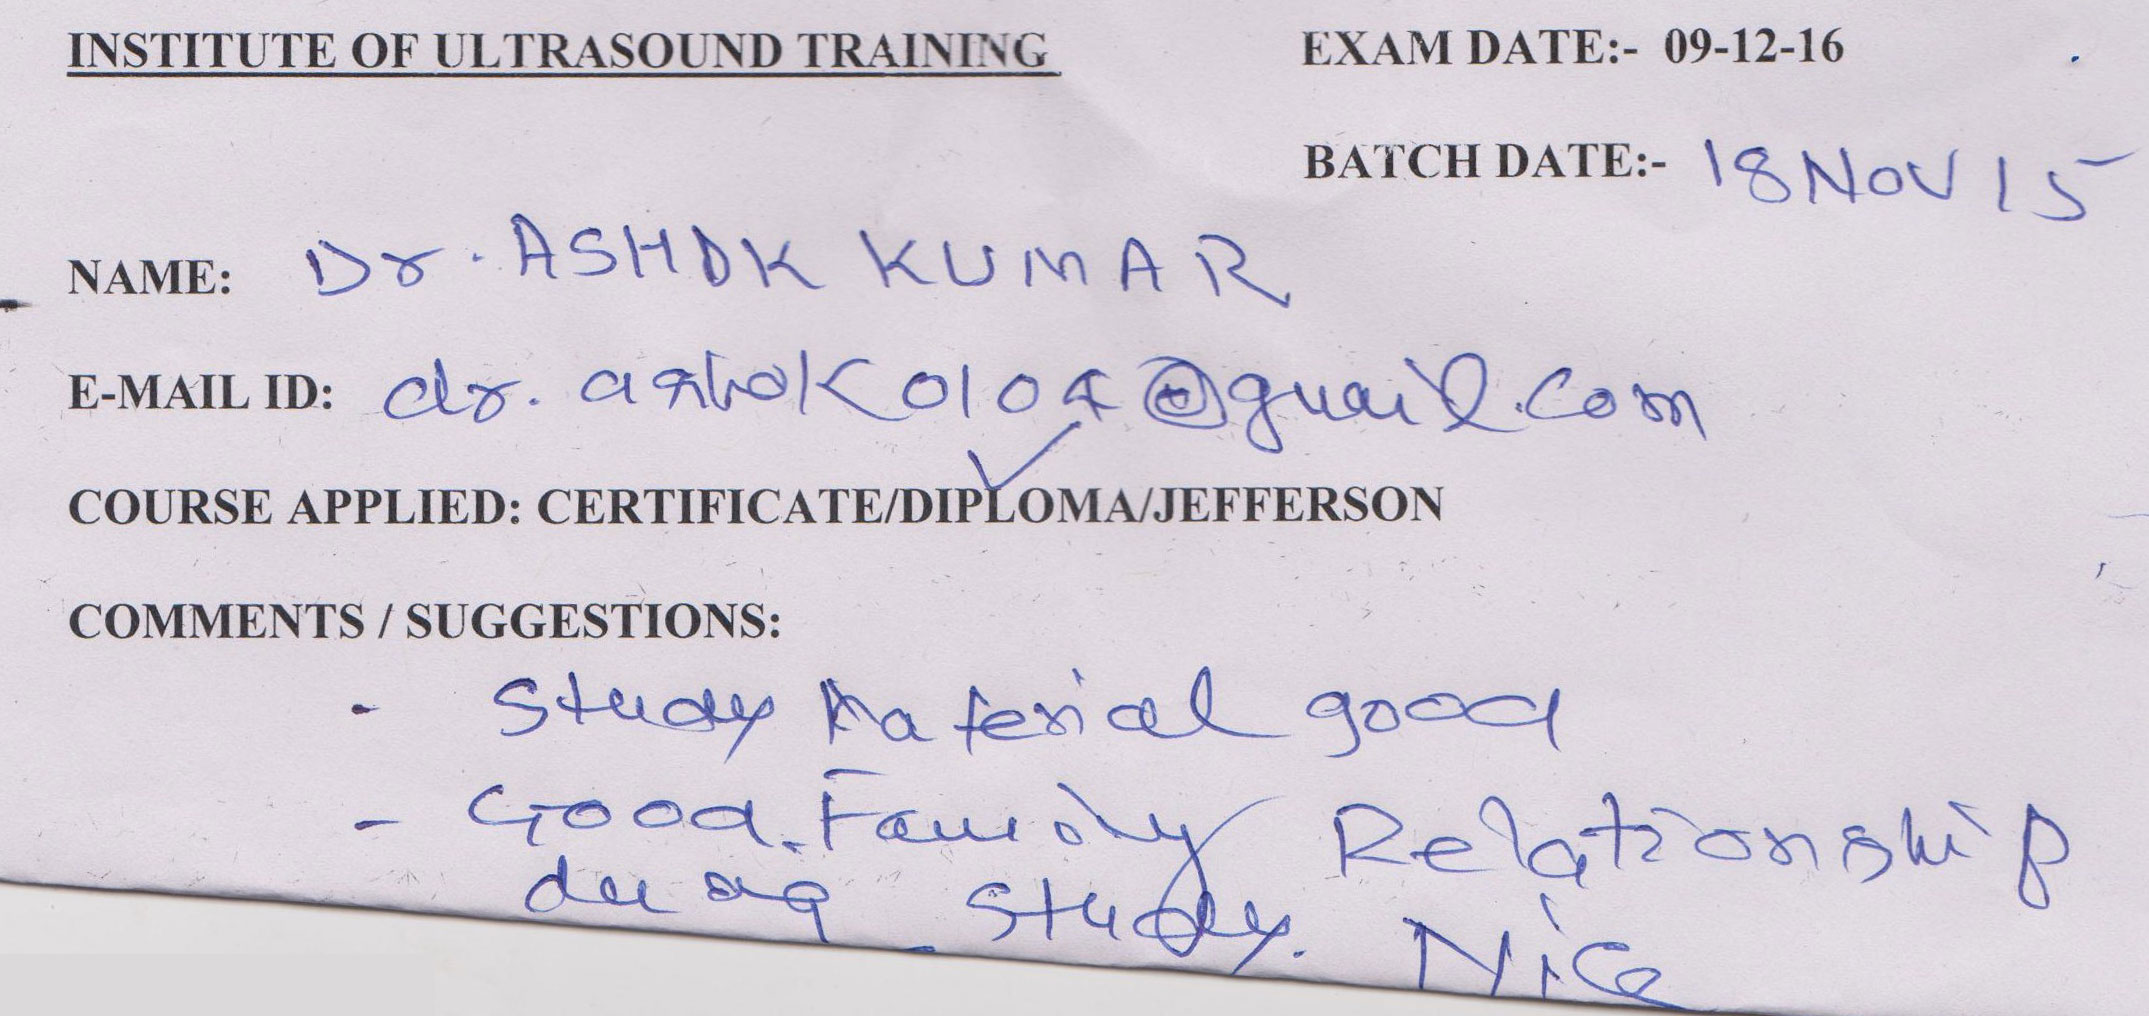 INSTITUTE OF ULTRASOUND TRAINING EXAM DATE:- 09-12-16
BATCH DATE:- 18 NOV 15
NAME: Dr. ASHOK KUMAR
E-MAIL ID: dr.ashok0104@gmail.com
COURSE APPLIED: CERTIFICATE/DIPLOMA/JEFFERSON
COMMENTS / SUGGESTIONS:
- Study Material good
- Good Family Relationship
study. Nice